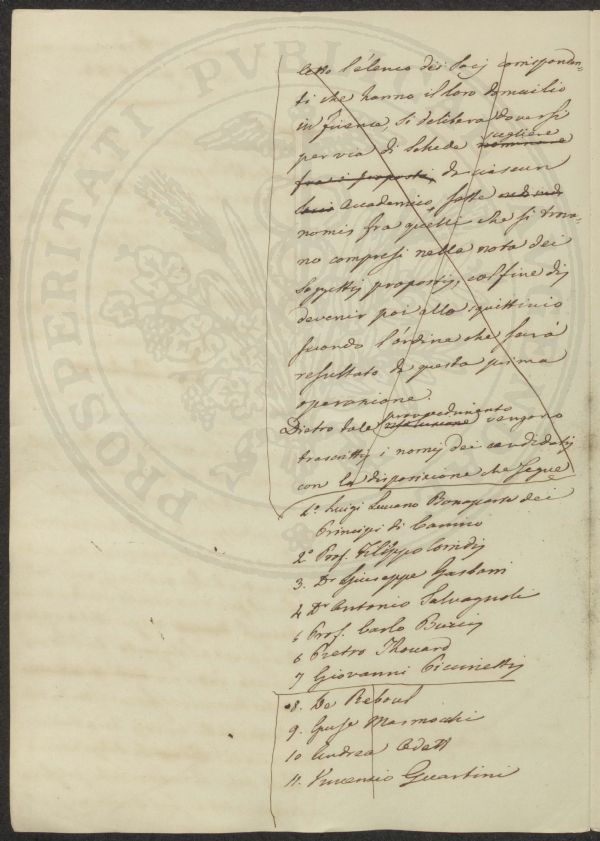 letto l'elenco dei Socj corrisponden=
ti che hanno il loro domicilio
in Firenze, si delibera doversi
per via di schede scegliere nominare
fra i proposti, da ciascun
Socio Accademico, sette
nomi fra quelli che si trova=
no compresi nella nota dei
soggetti proposti, coll'fine di
devenir poi allo squittinio
secondo l'ordine che sarà
resultato da questa prima
operazione.
Dietro tale provvedimento vengono
trascritti i nomi dei candidati
con la disposizione che segue
1.º Luigi Luciano Bonaparte dei
Principi di Canino
2º Prof. Filippo Corridi
3. Dr Giuseppe Gasbarri
4 Dr Antonio Salvagnoli
5 Prof. Carlo Burci
6 Pietro Thouard
7 Giovanni
8. De Reboul
9. Gusp Marmocchi
10 Andrea
11. Vincenzio Guartini
PROSPERITATI PVBLICAE